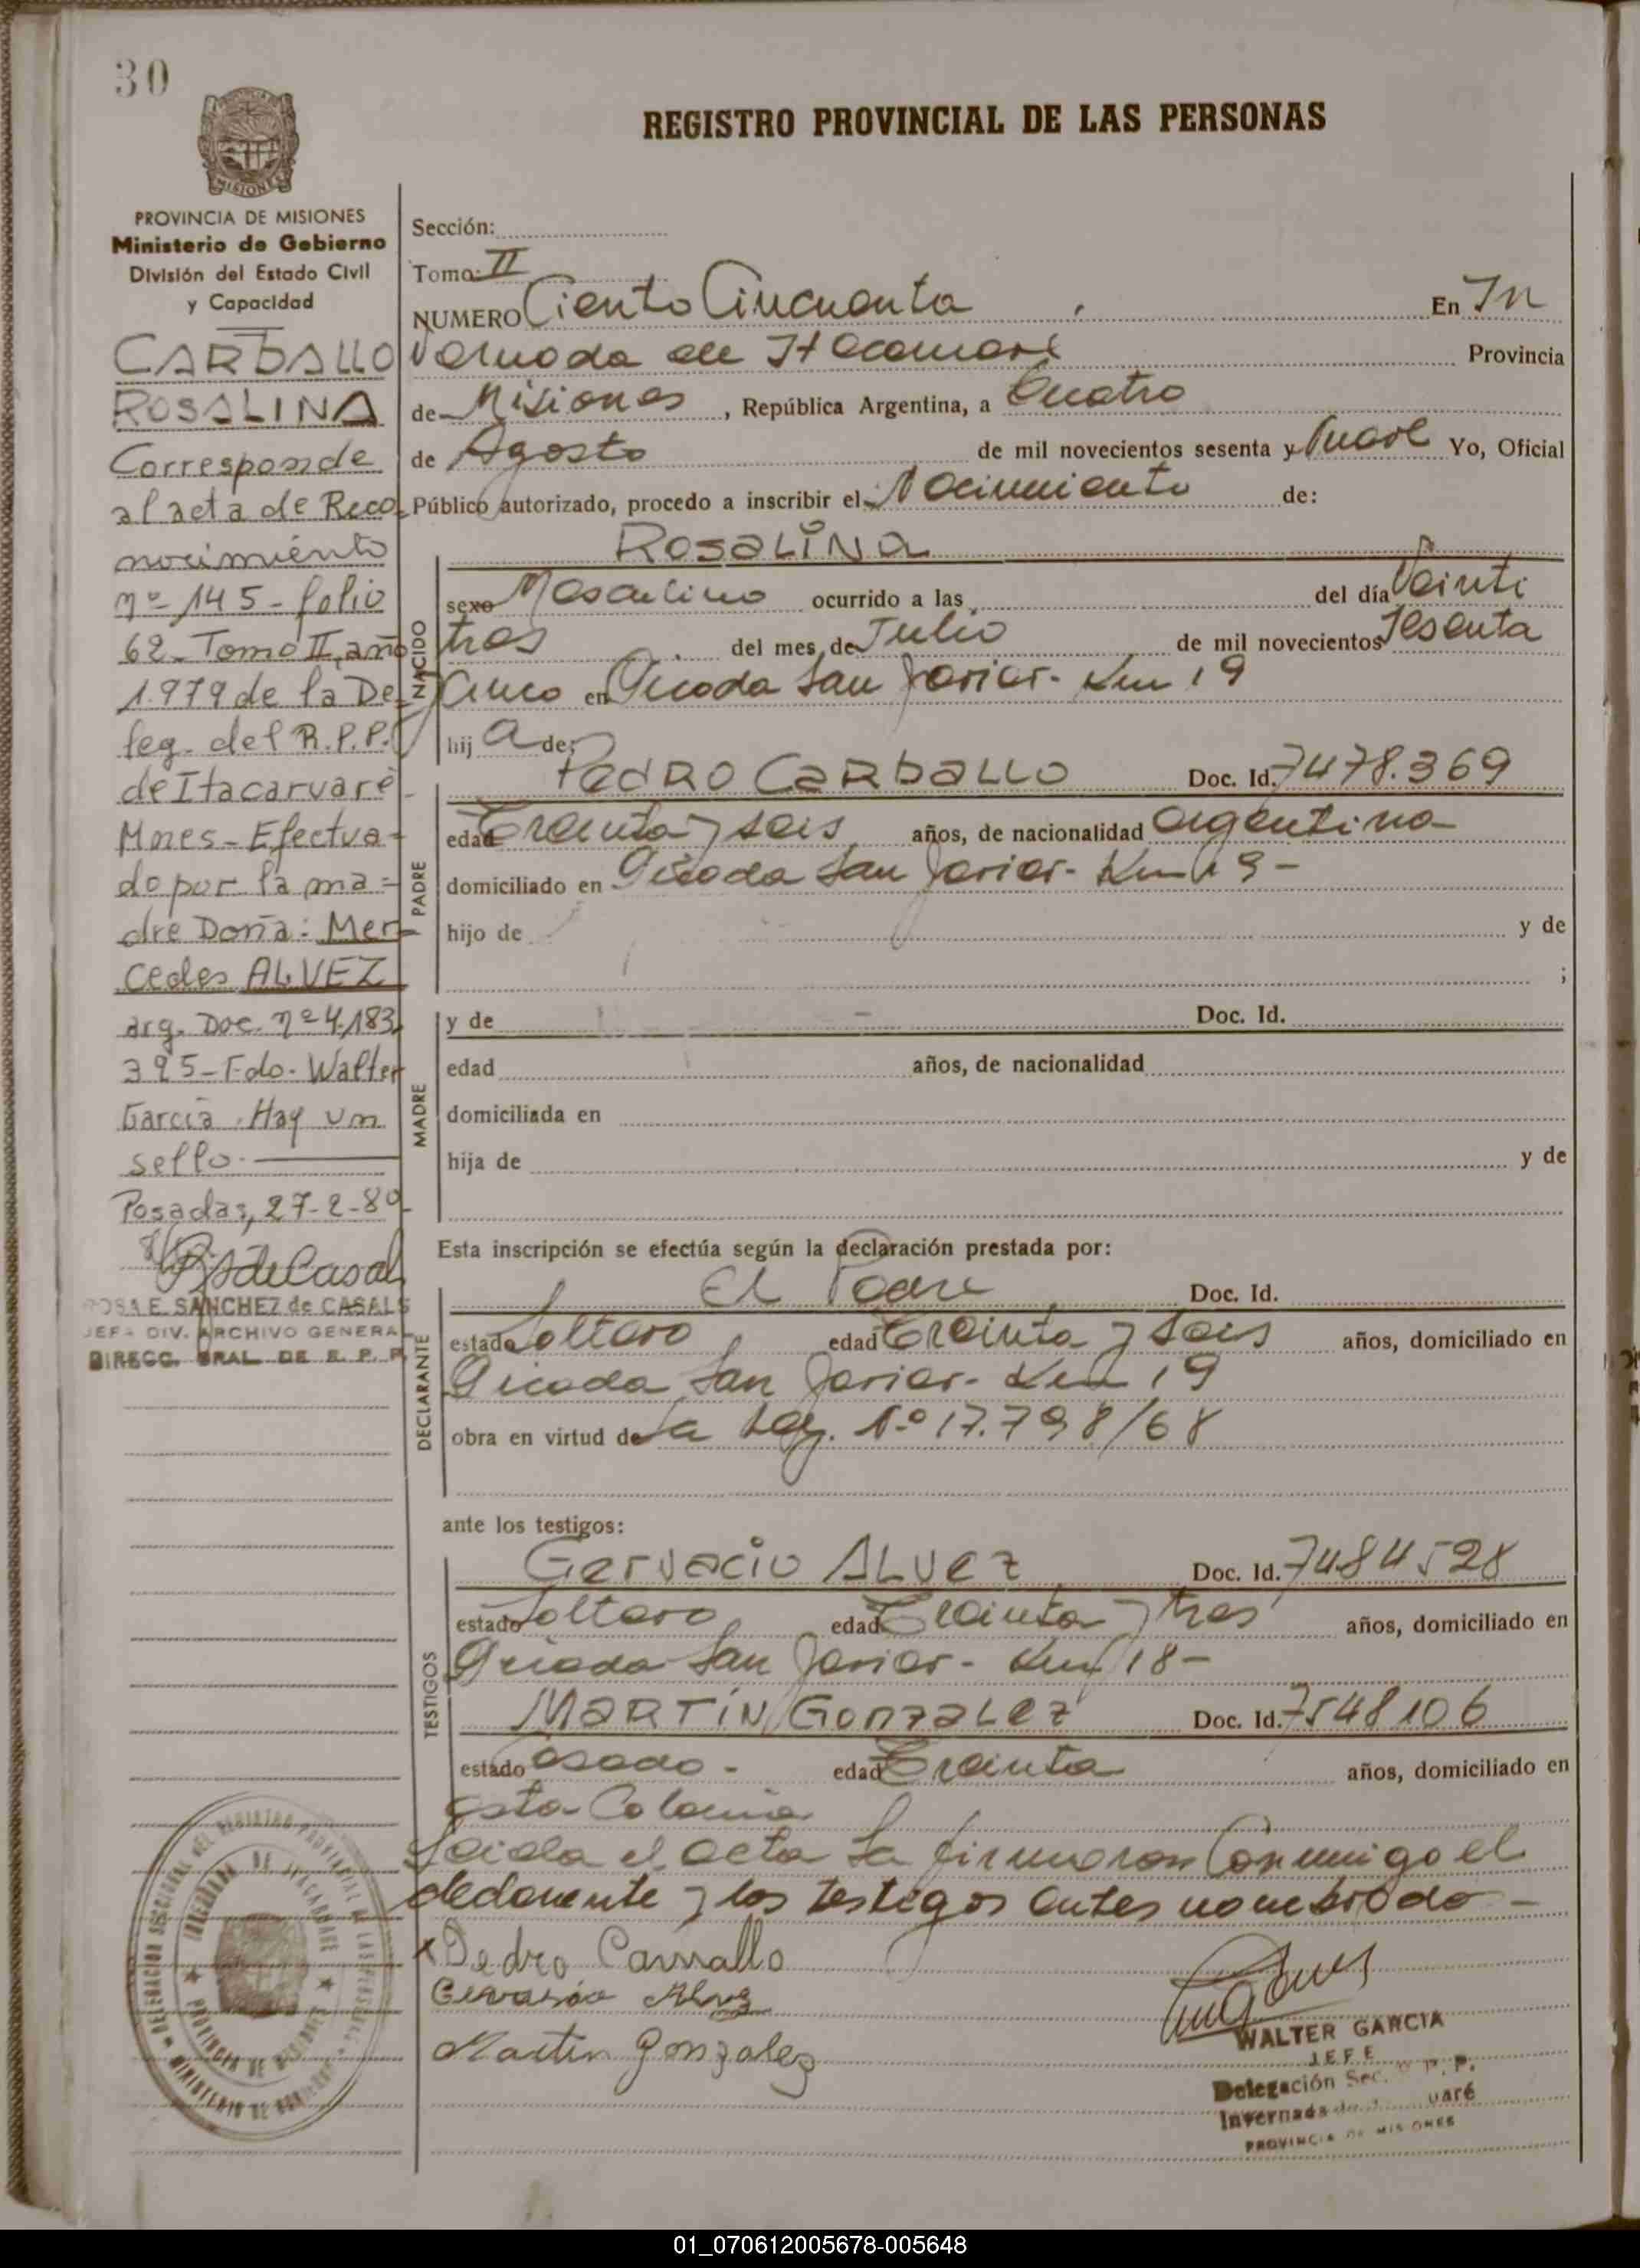 30
REGISTRO PROVINCIAL DE LAS PERSONAS
PROVINCIA DE MISIONES
Ministerio de Gobierno
División del Estado Civil
y Capacidad
CARBALLO
ROSALINA
Corresponde
al acta de Reco-
nocimiento
nº 145 - folio
62 - Tomo II, año
1.979 de la De-
leg. del R.P.P.
de Itacaruaré -
Mnes - Efectua-
do por la ma-
dre Doña: Mer-
cedes ALVEZ
arg. Doc. nº 4.183.
395 - Fdo. Walter
García. Hay un
sello.
Posadas, 27-2-80
ROSA E. SANCHEZ de CASALS
JEFA DIV. ARCHIVO GENERAL
DIRECC. GRAL. DE R. P. P.
Sección:
Tomo: II
NUMERO Ciento Cincuenta En In
vernada de Itacaruaré Provincia
de Misiones, República Argentina, a Cuatro
de Agosto de mil novecientos sesenta y nueve Yo, Oficial
Público autorizado, procedo a inscribir el Nacimiento de:
NACIDO
ROSALINA
sexo Masculino ocurrido a las del día Veinti
tres del mes de Julio de mil novecientos Sesenta
y cinco en Picada San Javier - Km 19
hij a de:
PADRE
PEDRO CARBALLO Doc. Id. 7478.369
edad Treinta y seis años, de nacionalidad argentina
domiciliado en Picada San Javier - Km 19 -
hijo de y de
;
MADRE
y de Doc. Id.
edad años, de nacionalidad
domiciliada en
hija de y de
Esta inscripción se efectúa según la declaración prestada por:
DECLARANTE
El Padre Doc. Id.
estado Soltero edad Treinta y seis años, domiciliado en
Picada San Javier - Km 19
obra en virtud de La Ley. Nº 17.798/68
ante los testigos:
TESTIGOS
GERVACIO ALVEZ Doc. Id. 7484528
estado Soltero edad Treinta y tres años, domiciliado en
Picada San Javier - Km 18 -
MARTIN GONZALEZ Doc. Id. 7548106
estado Casado - edad Treinta años, domiciliado en
esta Colonia
Leida el acta La firmaron Conmigo el
declarante y los testigos antes nombrado -
x Pedro Carvallo
Gervasio Alvez
Martin Gonzalez
WALTER GARCIA
JEFE
Delegación Sec. R. P. P.
Invernada de Itacaruaré
PROVINCIA DE MISIONES
DELEGACION SECCIONAL DEL REGISTRO PROVINCIAL DE LAS PERSONAS
INVERNADA DE ITACARUARE
PROVINCIA DE MISIONES
MINISTERIO DE GOBIERNO
01_070612005678-005648